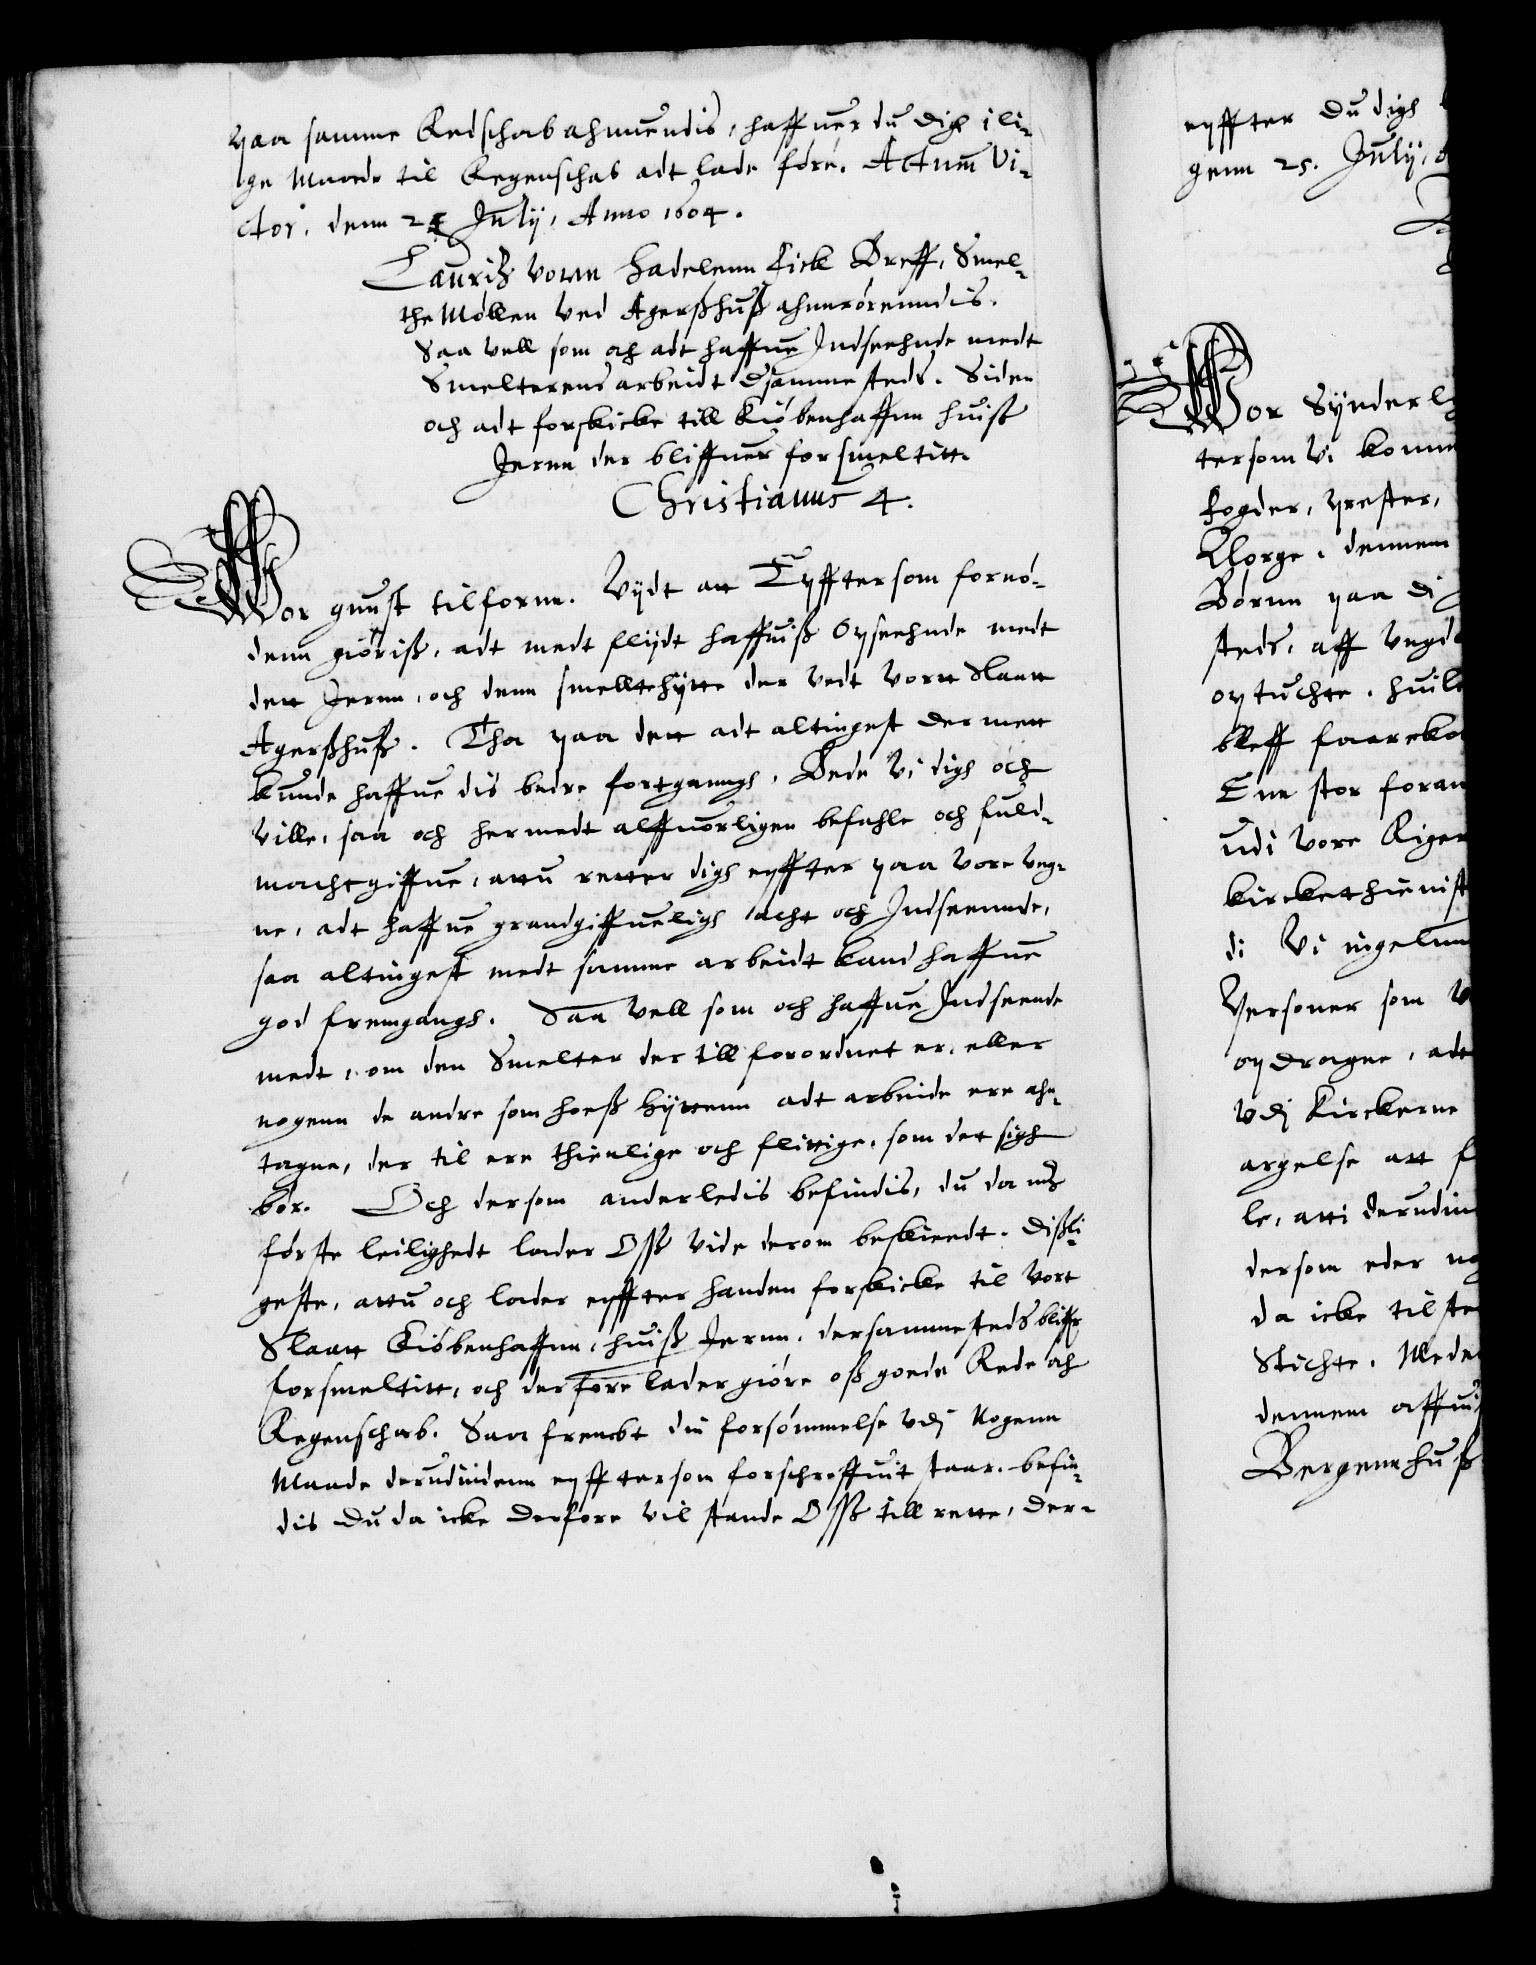 paa samme Redschab ahnuendis, haffuer du dig i li¬
ge Maade til Regenschab adt lade føre. Actum Vi¬
ctor. denn July, Anno 1604.
Lauritz vonn Hadelenn fick Breff, Smel¬
the Møllen ved Agerszhusz ahnrørenndis.
Saa vell som och adt haffue Indseehnde medt
Smelterens arbeidt dsammesteds. Siden
och adt forskicke till Kiøbenhaffnn huisz
Jernn der bliffuer forsmeltitt.
Christianus 4.
Wor gunst tilfornn. Vydt att Epfftersom fornø¬
denn giøris, adt medt flydt haffuisz Opseehnde medt
dett Jernn, och denn smelltehytte der vedt vortt Slaatt
Agerszhusz. Tha paa dett adt altingest dermett
kunde haffue dis bedre fortganngh. Bede Vi digh och
ville, saa och hermedt alffuorligen befahle och fuld¬
machtgiffue, attu retter digh epffter paa vore veg¬
ne, adt haffue grandgiffueligh acht och Indseennde,
saa altingest medt samme arbeidt kand haffue
god fremgangh. Saa vell som och haffue Indseende
medt, om den Smelter der till forordnet er, eller
nogenn de andre som hoesz hyttenn adt arbeide ere ahn¬
tagne, der til ere thienlige och flittige, som det sigh
bør. Och dersom anderledis befindis, du da mz
første leilighedt lader Osz vide derom beskieedt. Diszli¬
geste, attu och lader epffter handen forskicke til vort
Slaatt Kiøbenhaffnn, huisz Jernn, dersammesteds bliffr
forsmeltitt, och derfore lader giøre osz goede Rede och
Regenschab. Saa frembt din forsømmelse vdj Nogenn
Maade derudindenn epfftersom forschreffuit staar, befin¬
dis du da icke derfore vil stande Osz till rette, der¬
epffter du digh
genn 25. July,
Wor Synderl
tersom Vi komme
fogder, prester,
Norge, dennem
Børnn paa di
steds, aff vngd
optuchte, huil
bleff faareko
Enn stor foran
udi vore Riger
kirckethienist
di Vi ingelun
Personer som
opdragne, adt
vdj Kirckerne
argelse att f
le, atti derudin
dersom eder no
da icke tilste
Stichte. Mede
dennem affui
Bergennhusz